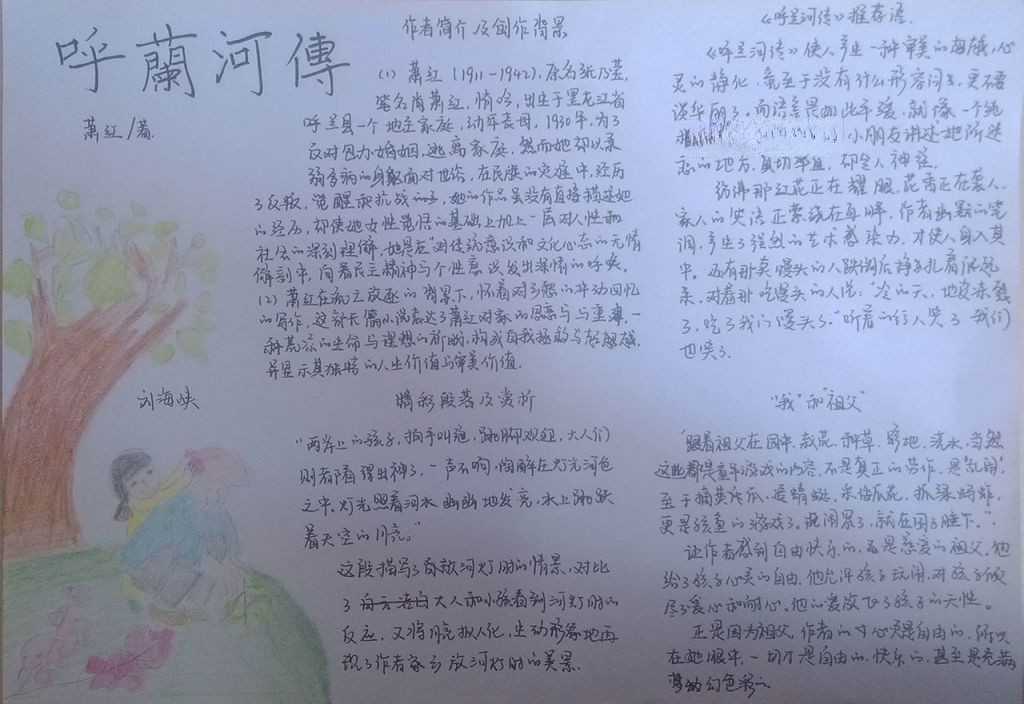 呼蘭河傳
萧红/著
作者简介及创作背景
(1) 萧红(1911-1942),原名张乃莹,
笔名尚萧红,悄吟,出生于黑龙江省
呼兰县一个地主家庭,幼年丧母,1930年,为了
反对包办婚姻,逃离家庭,然而她却以柔
弱多病的身躯面对世俗,在民族的灾难中,经历
了反叛、觉醒和抗战的,她的作品虽没有直接描述她
的经历,却使她女性觉悟的基础上加上一层对人性和
社会的深刻理解,她是在"对传统意识和文化心态的无情
解剖中,向着民主精神与个性意识发出深情的呼唤。
(2) 萧红在流亡放逐的背景下,怀着对的冲动回忆
的写作,这部长篇小说表达了萧红对家的思恋与与重,一
种荒凉的生命与理想的祈盼,构成自我拯救与超越,
并显示其独特的人生价值与审美价值.
《呼兰河传》推荐语.
《呼兰河传》使人产生一种审美的超越,心
灵的静化,甚至于没有什么形容词,更不要
谈华丽了,而语言畏如此平缓,就像一个纯
小朋友讲述她所迷
恋的地方,真切率直,却令人神往.
彷佛那红花正在耀眼,花香正在袭人,
家人的笑语正萦绕在耳畔,作者幽默的笔
调,产生了强烈的艺术感染力,才使人身入其
中。还有那卖馒头的人跌倒后
来,对着那吃馒头的人说:"冷的天,地皮冻裂
了,吃了我的馒头了."听着的行人笑了,我们
也笑了.
刘海峡
精彩段落及赏析
"两岸上的孩子,拍手叫绝,跳脚欢迎,大人们
则都看得出神了,一声不响,陶醉在灯光河色
之中.灯光照着河水幽幽地发亮.水上跳跃
着天空的月亮。"
这段描写了看放河灯时的情景,对比
了大人和小孩看到河灯时的
反应,又将月亮拟人化,生动形象地再
现了作者家乡放河灯时的美景.
"我"和"祖父"
"跟着祖父在园中,栽花,种草,铲地,浇水,当然
这些都是童年游戏的内容,不是真正的劳作,是"乱闹",
至于摘黄瓜,捉蜻蜓,采倭瓜花,抓绿蚂蚱,
更是孩童的游戏了,说闹累了,就在园子睡下."
让作者感到自由快乐的,是慈爱的祖父,他
给了孩子心灵的自由,他允许孩子玩闹,对孩子倾
尽了爱心和耐心,他的爱放飞了孩子的天性。
正是因为祖父,作者的内心更是自由的,所以
在她眼中,一切才是自由的,快乐的,甚至是充满
梦的幻色彩的